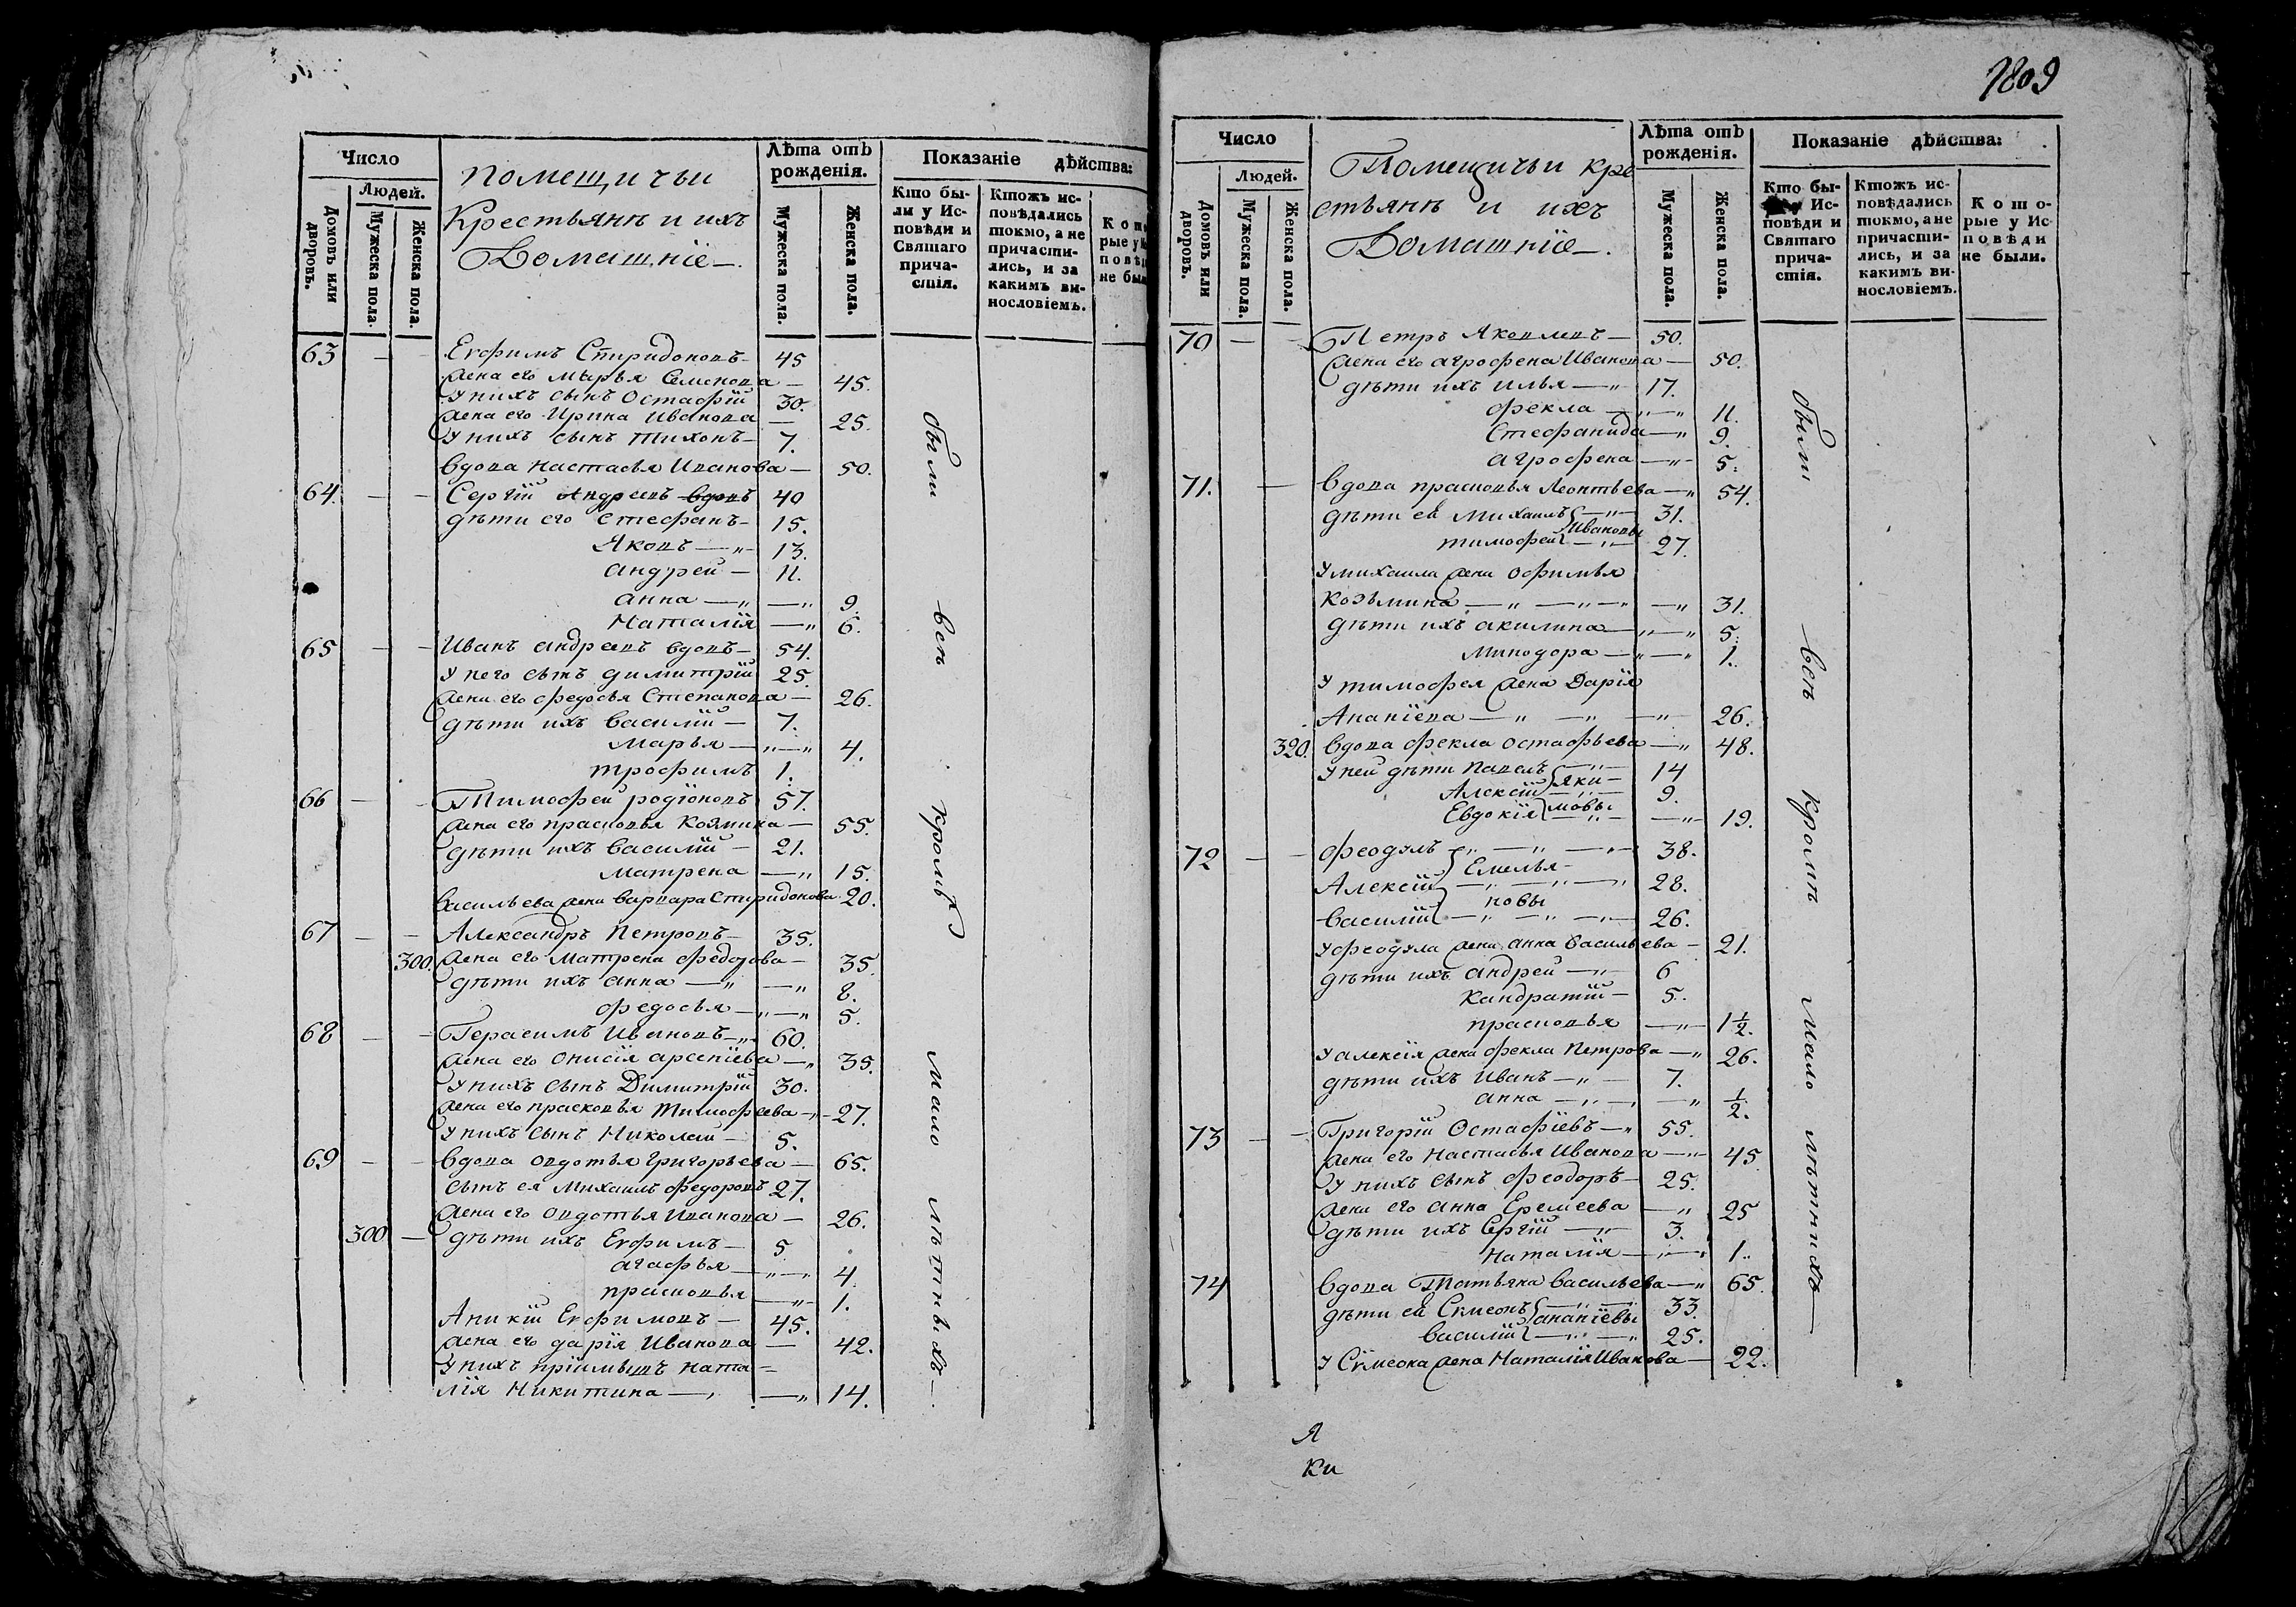 Число
Людей.
Домовъ или дворовъ.
Мужеска пола.
Женска пола.
Помещичьи
Крестьянѣ и ихъ
Домашніе
Лѣта отъ рожденія.
Мужеска пола.
Женска пола.
Показаніе дѣйства:
Кто были у Исповѣди и Святаго причастія.
Ктожъ исповѣдались токмо, а не причастились, и за какимъ винословіемъ.
63 — — Ефимъ Спиридоновъ — 45
Жена его Марья Семенова — 45.
У нихъ сынъ Остафій 30.
Жена его Ирина Иванова — 25.
У нихъ сынъ Тихонъ — 7.
Вдова Настасья Иванова — 50.
64. — — Сергій Андреевъ вдовъ 40
Дѣти его Стефанъ — 15.
Яковъ — 13.
Андрей — 11.
Анна — 9.
Наталія — 6.
65 — — Иванъ Андреевъ вдовъ — 54.
У него сынъ Димитрій 25.
Жена его Федосья Степанова — 26.
Дѣти ихъ Василій — 7.
Марья — 4.
Трофимъ 1.
66 — — Тимофей Родіоновъ 57.
Жена его Прасковья Козмина — 55.
Дѣти ихъ Василій — 21.
Матрена — 15.
Васильева жена Варвара Спиридонова 20.
67 — — Александръ Петровъ — 35.
300. Жена его Матрена Федорова — 35.
Дѣти ихъ Анна — 8.
Федосья — 5.
68 — — Герасимъ Ивановъ — 60.
Жена его Онисія Арсеніева — 35.
У нихъ сынъ Димитрій 30.
Жена его Прасковья Тимофеева — 27.
У нихъ сынъ Николай — 5.
69 — — Вдова Овдотья Григорьева — 65.
Сынъ ея Михаилъ Федоровъ 27.
Жена его Овдотья Иванова — 26.
300 — Дѣти ихъ Ефимъ — 5
Агафья — 4
Прасковья — 1.
Аникій Ефимовъ — 45.
Жена его Дарія Иванова — 42.
У нихъ пріимышъ Ната-
лія Никитина — 14.
были всѣ кромѣ мало лѣтныхъ —
1809
Число
Людей.
Домовъ или дворовъ.
Мужеска пола.
Женска пола.
Помещичьи кре
стьянѣ и ихъ
Домашніе —
Лѣта отъ рожденія.
Мужеска пола.
Женска пола.
Показаніе дѣйства:
Кто бы- Исповѣди и Святаго причастія.
Ктожъ исповѣдались токмо, а не причастились, и за какимъ винословіемъ.
Которые у Исповѣди не были.
70 — — Петръ Яковлевъ — 50.
Жена его Агрофена Иванова — 50.
Дѣти ихъ Илья — 17.
Фекла — 11.
Стефанида — 9.
Агрофена — 5.
71. — Вдова Прасковья Леонтьева — 54.
Дѣти ей Михаилъ — 31.
Ивановы
Тимофей — 27.
У Михаила жена Офимья
Козьмина — 31.
Дѣти ихъ Акилина — 5.
Минодора — 1.
У Тимофея жена Дарія
Ананіева — 26.
320. Вдова Фекла Остафьева — 48.
У ней дѣти Павелъ — 14
Яки-
Алексій — 9.
мовы
Евдокія — 19.
72 — — Феодулъ — 38.
Емелья-
Алексій — 28.
новы
Василій — 26.
У Феодула жена Анна Васильева — 21.
Дѣти ихъ Андрей — 6
Кандратій — 5.
Прасковья — 1½.
У Алексія жена Фекла Петрова — 26.
Дѣти ихъ Иванъ — 7.
Анна — ½.
73 — — Григорій Остафіевъ — 55.
Жена его Настасья Иванова — 45
У нихъ сынъ Феодоръ — 25.
Жена его Анна Еремеева — 25
Дѣти ихъ Сергій — 3.
Наталія — 1.
74 Вдова Татьяна Васильева — 65.
Дѣти ей Сімеонъ — 33.
Ананіевы
Василій — 25.
У Сімеона жена Наталія Иванова — 22.
были всѣ кромѣ мало лѣтнихъ —
Я
Ки